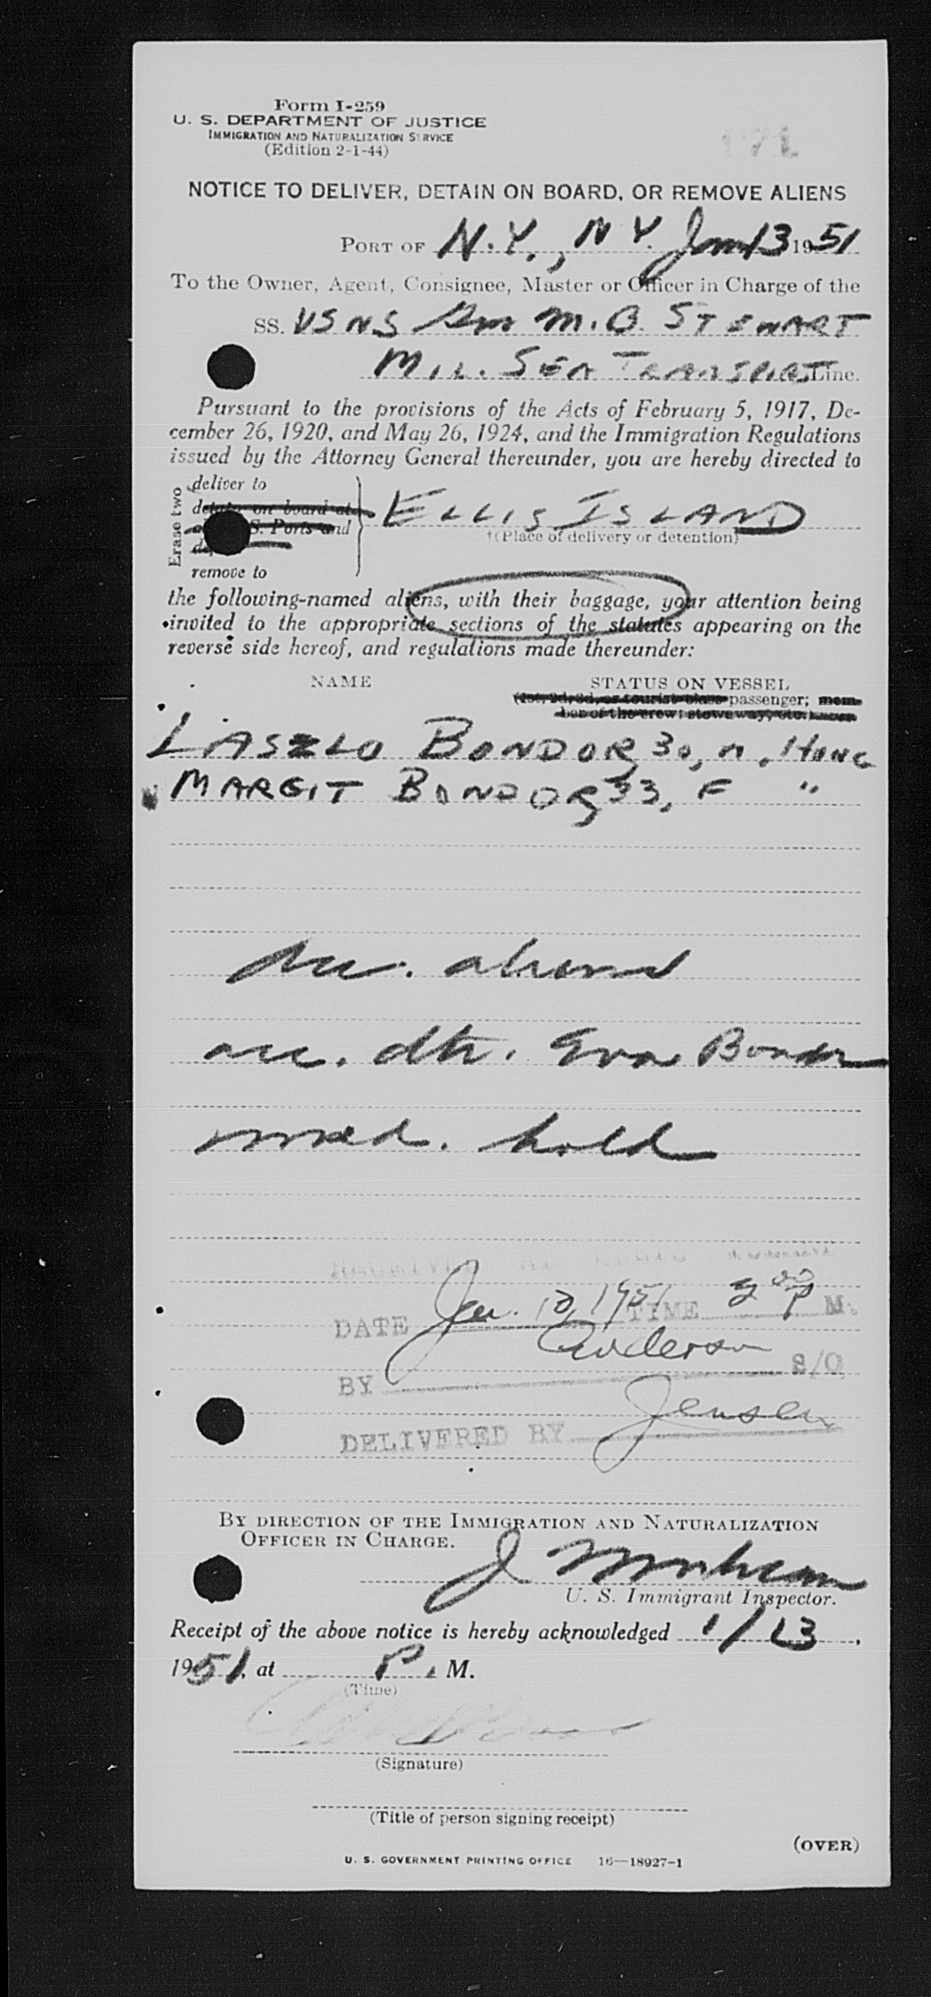 Form I-259
U. S. DEPARTMENT OF JUSTICE
IMMIGRATION AND NATURALIZATION SERVICE
(Edition 2-1-44)
171
NOTICE TO DELIVER, DETAIN ON BOARD, OR REMOVE ALIENS
PORT OF N.Y., N Y. Jan 13 1951
To the Owner, Agent, Consignee, Master or Officer in Charge of the
SS. USNS Gen M. B. STEWART
MIL. SEA TRANSPORT Line.
Pursuant to the provisions of the Acts of February 5, 1917, De-
cember 26, 1920, and May 26, 1924, and the Immigration Regulations
issued by the Attorney General thereunder, you are hereby directed to
Erase two
deliver to
detain on board at
S. Ports and
remove to
ELLIS ISLAND
†(Place of delivery or detention)
the following-named aliens, with their baggage, your attention being
invited to the appropriate sections of the statutes appearing on the
reverse side hereof, and regulations made thereunder:
NAME STATUS ON VESSEL
(1st, 2d, 3d, or tourist class passenger; mem-
ber of the crew; stowaway, etc.
LASZLO BONDOR, 30, M, HUNG
MARGIT BONDOR, 33, F "
acc. dtr. Eva Bondor
med. hold
DATE Jan. 13, 1951 TIME 2 00 P M.
BY Anderson S/O
DELIVERED BY Jensen
BY DIRECTION OF THE IMMIGRATION AND NATURALIZATION
OFFICER IN CHARGE.
J
U. S. Immigrant Inspector.
Receipt of the above notice is hereby acknowledged 1/13,
1951, at P. M.
(Time)
(Signature)
(Title of person signing receipt)
(OVER)
U. S. GOVERNMENT PRINTING OFFICE 16—18927-1